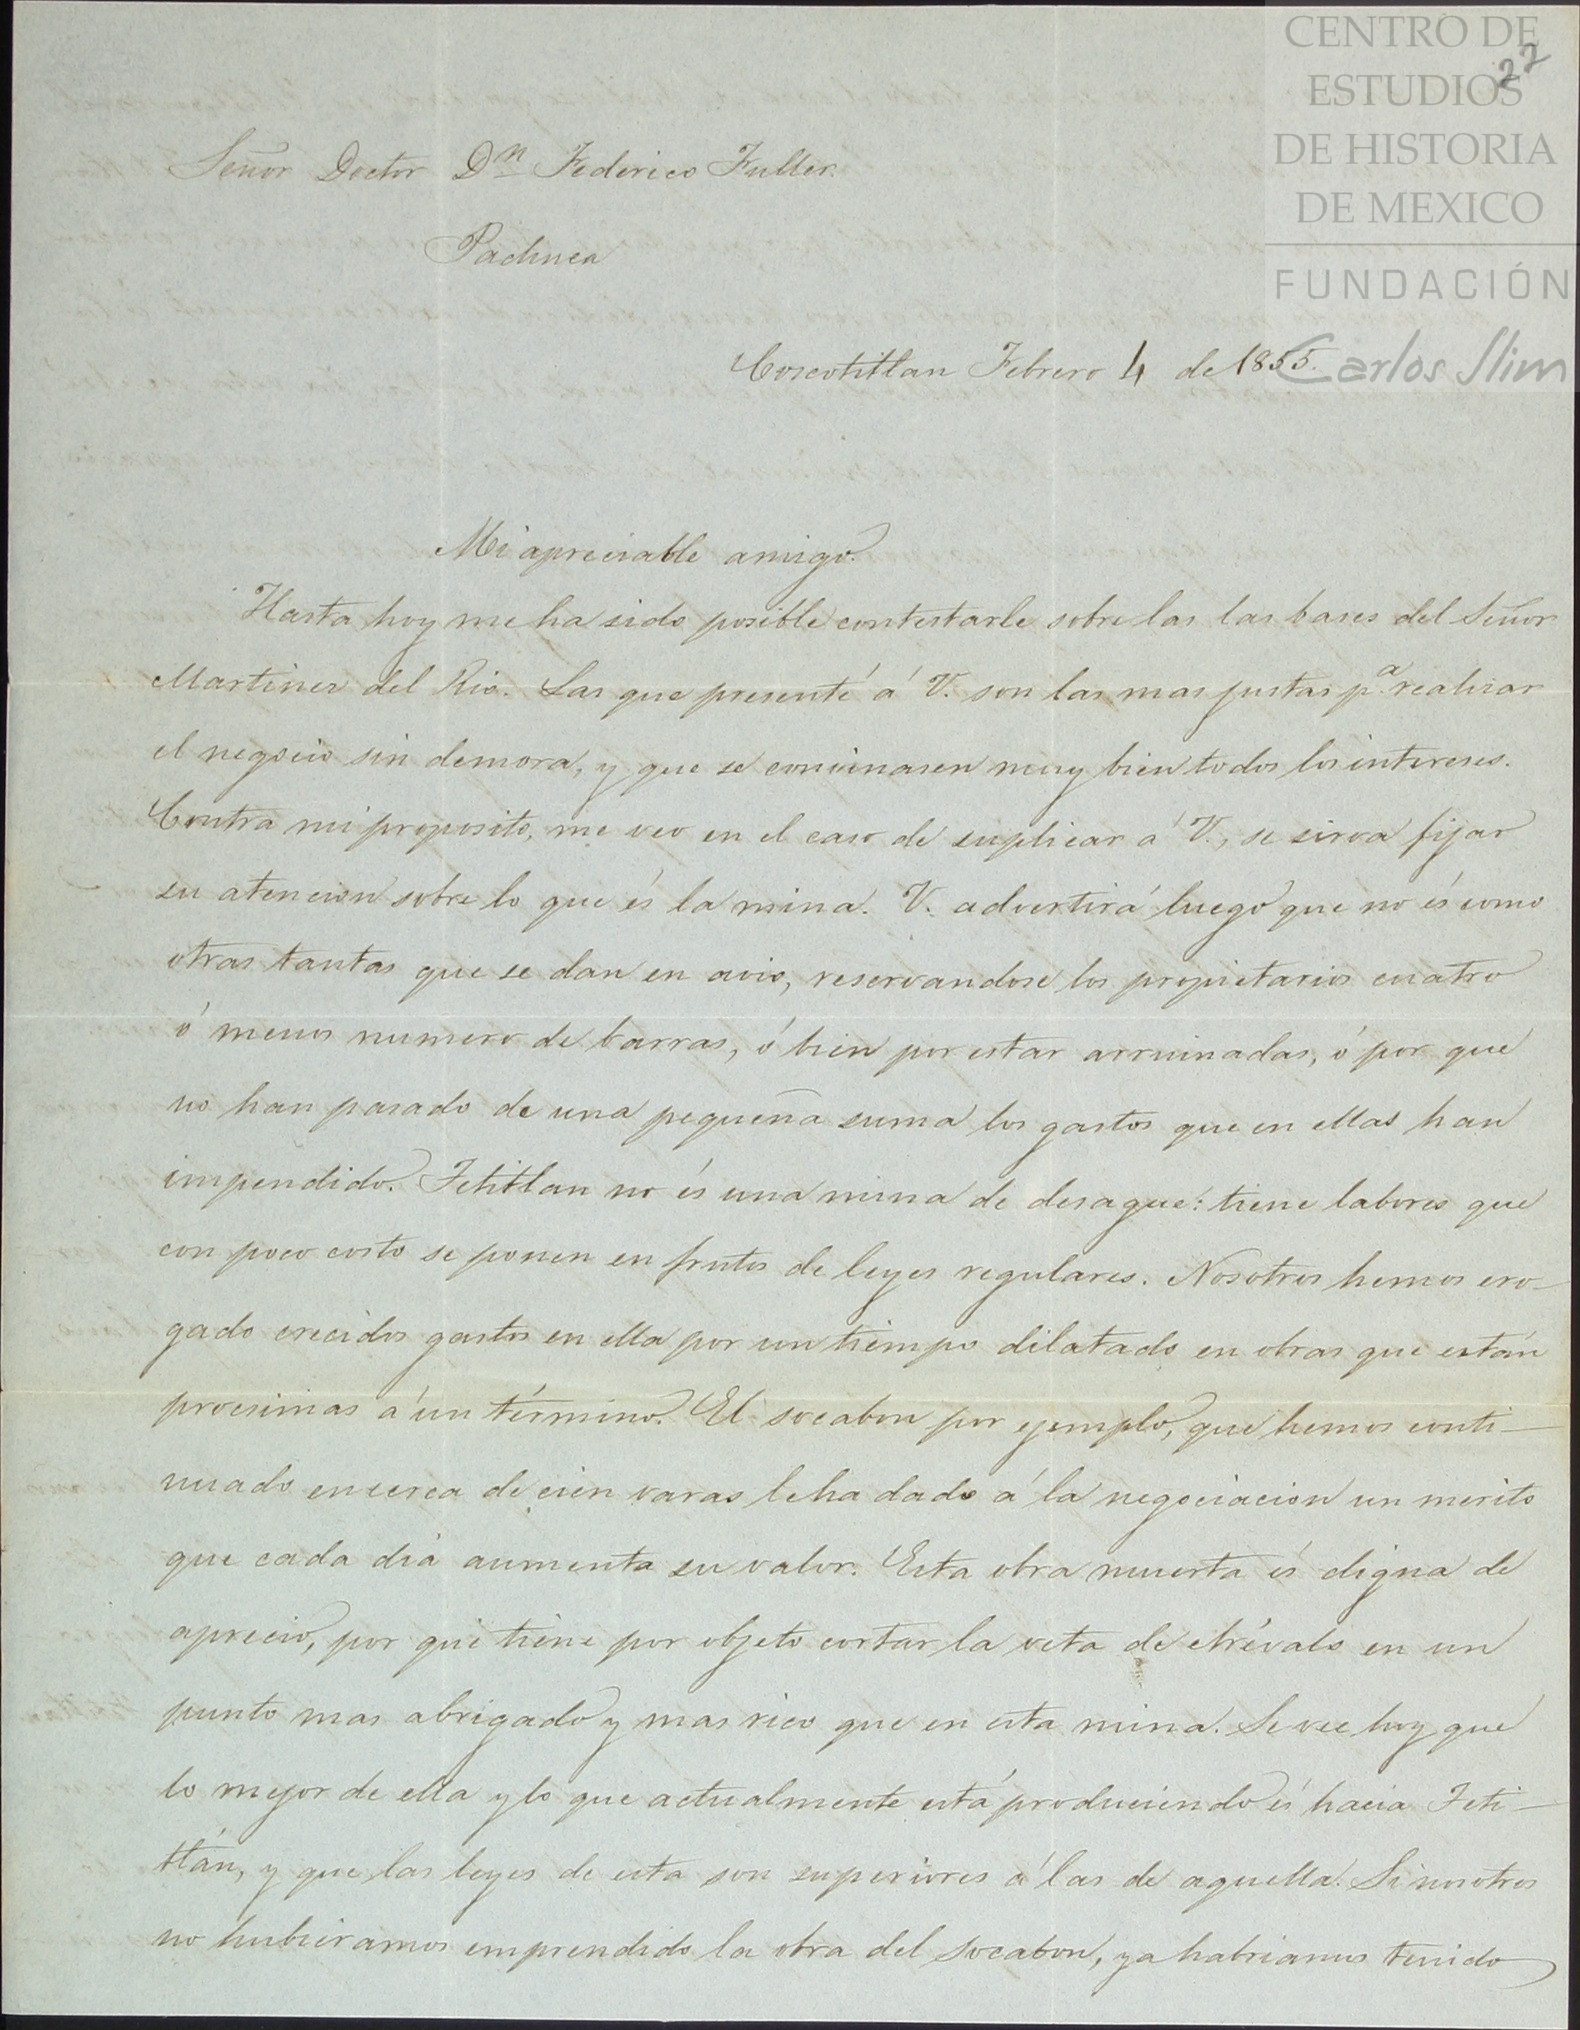 CENTRO DE
ESTUDIOS
DE HISTORIA
DE MEXICO
FUNDACIÓN
Carlos Slim
22
Señor Doctor Dn Federico Fuller.
Pachuca
Coscotitlan Febrero 4 de 1855.
Mi apreciable amigo.
Hasta hoy me ha sido posible contestarle sobre las las bases del Señor
Martinez del Rio. Las que presenté á V. son las mas justas pa. realizar
el negocio sin demora, y que se convinasen muy bien todos los intereses.
Contra mi proposito, me veo en el caso de suplicar á V., se sirva fijar
su atencion sobre lo que és la mina. V. advertirá luego que no és como
otras tantas que se dan en avio, reservandose los propietarios cuatro
ó menos numero de barras, ó bien por estar arruinadas, ó por que
no han pasado de una pequeña suma los gastos que en ellas han
impendido. Tetitlan no és una mina de desague: tiene labores que
con poco costo se ponen en frutos de leyes regulares. Nosotros hemos ero-
gado crecidos gastos en ella por un tiempo dilatado en obras que están
procsimas á un término. El socabon por ejemplo, que hemos conti-
nuado en cerca de cien varas le ha dado á la negociacion un merito
que cada dia aumenta su valor. Esta obra muerta és digna de
aprecio, por que tiene por objeto cortar la veta de Arévalo en un
punto mas abrigado y mas rico que en esta mina. Se vee hoy que
lo mejor de ella y lo que actualmente está produciendo és hacia Teti-
tlán, y que las leyes de esta son superiores á las de aquella. Si nosotros
no hubieramos emprendido la obra del socabon, ya habriamos tenido